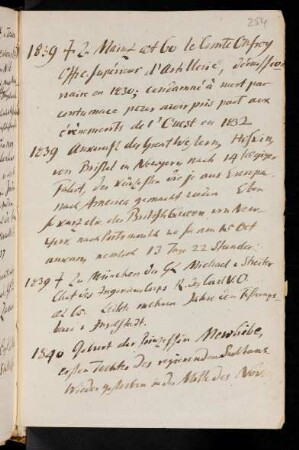 254
1839 † z. Mainz aet 60 le Comte Onfroy
Offic. Supérieur d'Artillerie, démission-
naire en 1830; condamné à mort par
contumace pour avoir pris part aux
événements de l'Ouest en 1832
1839 Ankunft des Great Western, Hosken,
von Bristol in Newyork nach 14 tägiger
Fahrt, der kürzesten die je aus Europa
nach America gemacht worden. Eben
so kurz die der British Queen von New-
york nach Portsmouth wo sie am 15 Oct
ankam nemlich 13 Tage 22 Stunden.
1839 † Zu München der GL Michael v Streiter
Chef des Ingenieurcorps R. des
aet 65. Leitete mehrere Jahre den Festungs-
bau v Ingolstadt.
1840 Geburt der Prinzessin Mewhibe,
ersten Tochter des regierenden Sultans
wieder gestorben in der Mitte des Nov.